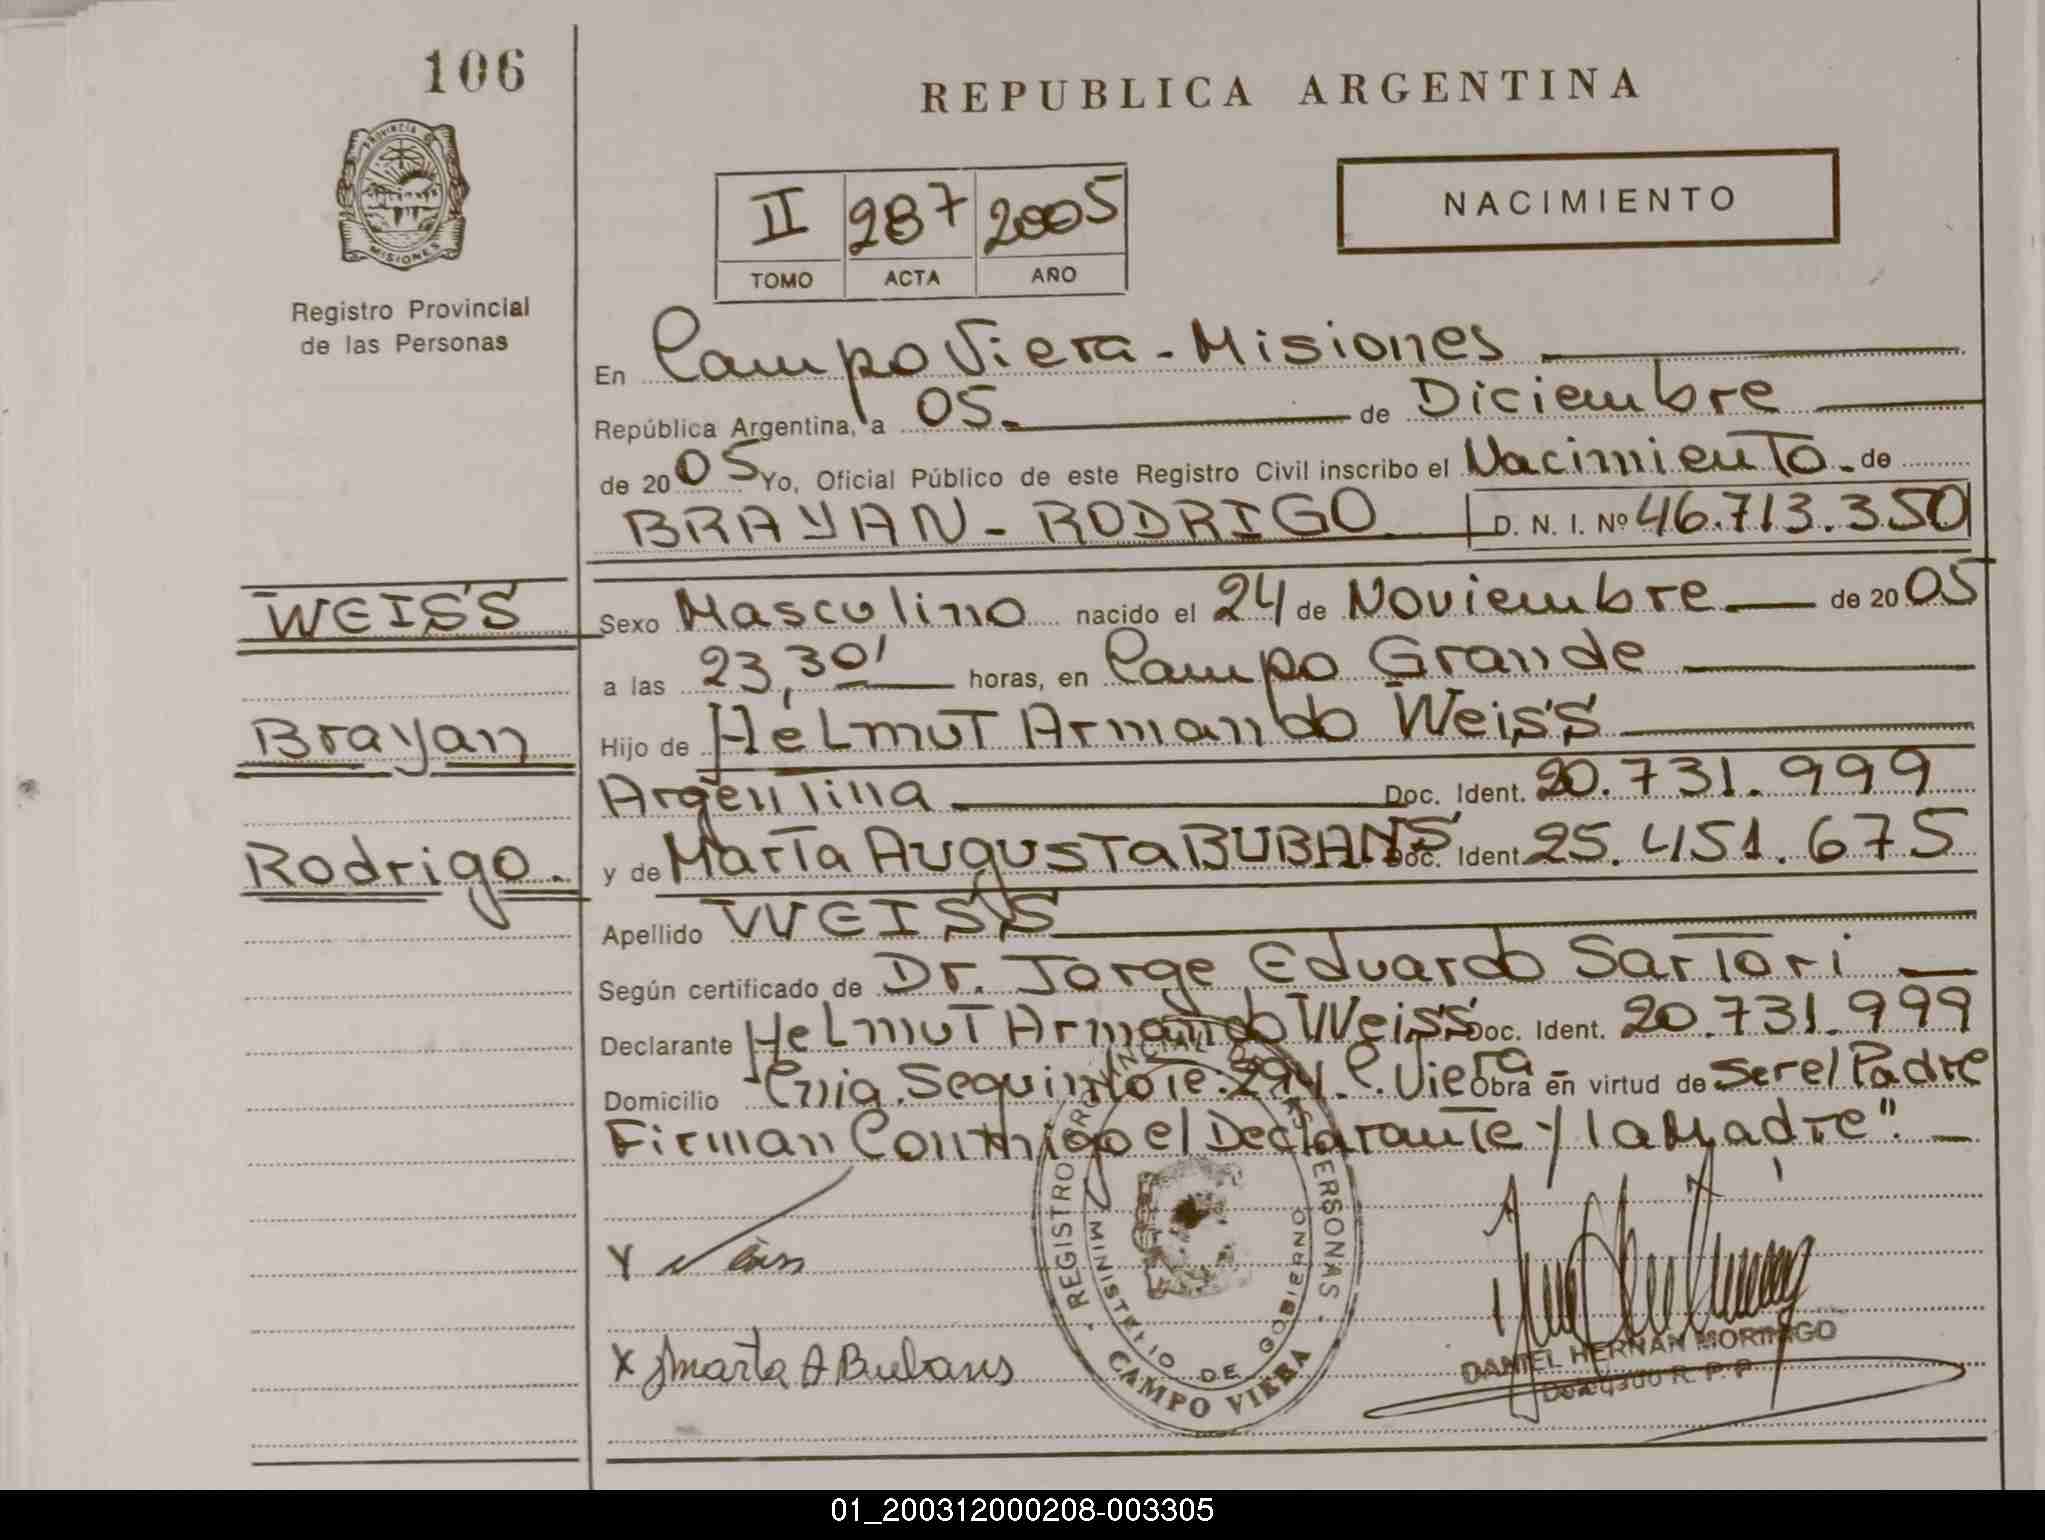 106
REPUBLICA ARGENTINA
PROVINCIA DE
MISIONES
Registro Provincial
de las Personas
II 287 2005
TOMO ACTA AÑO
NACIMIENTO
En Campo Viera - Misiones
República Argentina, a 05. de Diciembre
de 2005 Yo, Oficial Público de este Registro Civil inscribo el Nacimiento. de
BRAYAN - RODRIGO. D. N. I. Nº 46.713.350
WEISS
Brayan
Rodrigo.
Sexo Masculino nacido el 24 de Noviembre de 2005
a las 23,30' horas, en Campo Grande
Hijo de Helmut Armando Weiss
Argentina Doc. Ident. 20.731.999
y de Marta Augusta BUBANS Doc. Ident. 25.451.675
Apellido WEISS
Según certificado de Dr. Jorge Eduardo Sartori
Declarante Helmut Armando Weiss Doc. Ident. 20.731.999
Domicilio Cnia. Seguin lote: 294 C. Viera Obra en virtud de ser el Padre
Firman Conmigo el Declarante y la Madre".
REGISTRO PROVINCIAL DE LAS PERSONAS
MINISTERIO DE GOBIERNO
CAMPO VIERA
x Marta A Bubans
DANIEL HERNAN MORINIGO
Delegado R. P. P.
01_200312000208-003305